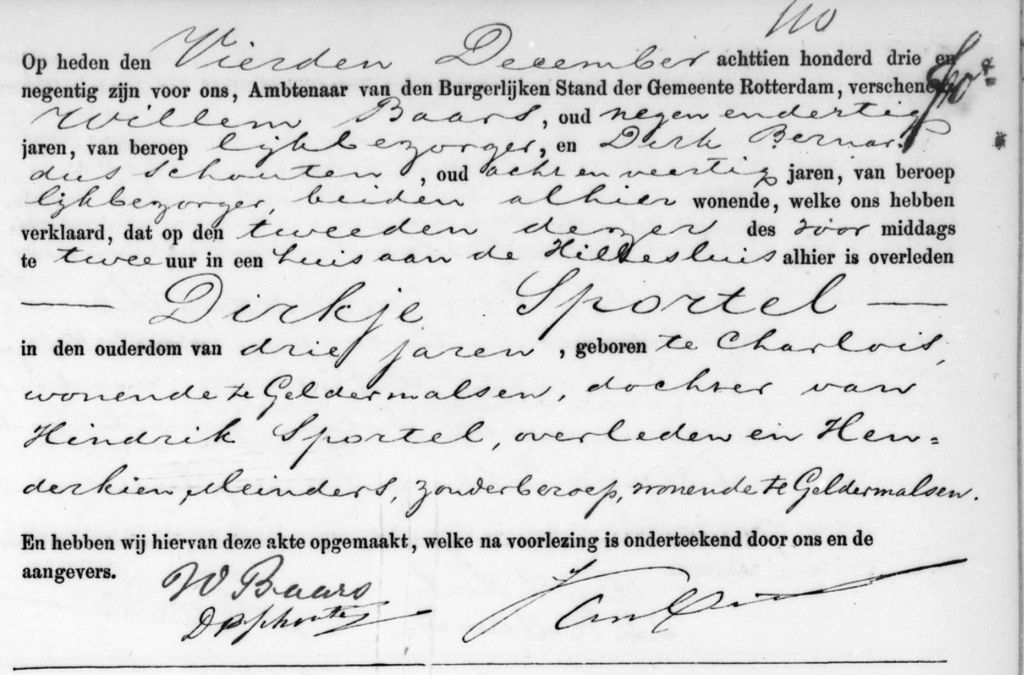 Op heden den Vierden December achttien honderd drie en
negentig zijn voor ons, Ambtenaar van den Burgerlijken Stand der Gemeente Rotterdam, verschenen
Willem Baars, oud negenendertig
jaren, van beroep lijkbezorger, en Dirk Bernar-
dus Schouten, oud achtenveertig jaren, van beroep
lijkbezorger, beiden alhier wonende, welke ons hebben
verklaard, dat op den tweeden dezer des voor middags
te twee uur in een huis aan de Hillesluis alhier is overleden
Dirkje Sportel
in den ouderdom van drie jaren, geboren te Charlois,
wonende te Geldermalsen, dochter van
Hindrik Sportel, overleden en Hen=
derkien Meinders, zonder beroep, wonende te Geldermalsen.
En hebben wij hiervan deze akte opgemaakt, welke na voorlezing is onderteekend door ons en de
aangevers.
W Baars
DBSchouten